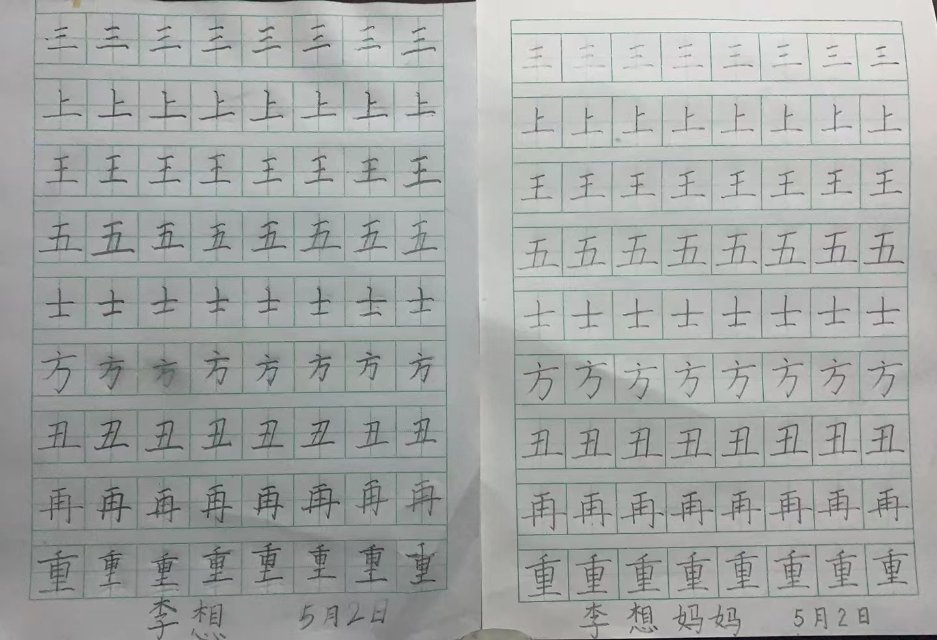 三三三三三三三三
上上上上上上上上
王王王王王王王王
五五五五五五五五
士士士士士士士士
方方方方方方方方
丑丑丑丑丑丑丑丑
再再再再再再再再
重重重重重重重重
李想 5月2日
三三三三三三三三
上上上上上上上上
王王王王王王王王
五五五五五五五五
士士士士士士士士
方方方方方方方方
丑丑丑丑丑丑丑丑
再再再再再再再再
重重重重重重重重
李想妈妈 5月2日